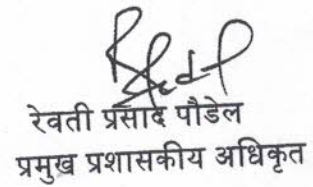 रेवती प्रसाद पौडेल
प्रमुख प्रशासकीय अधिकृत